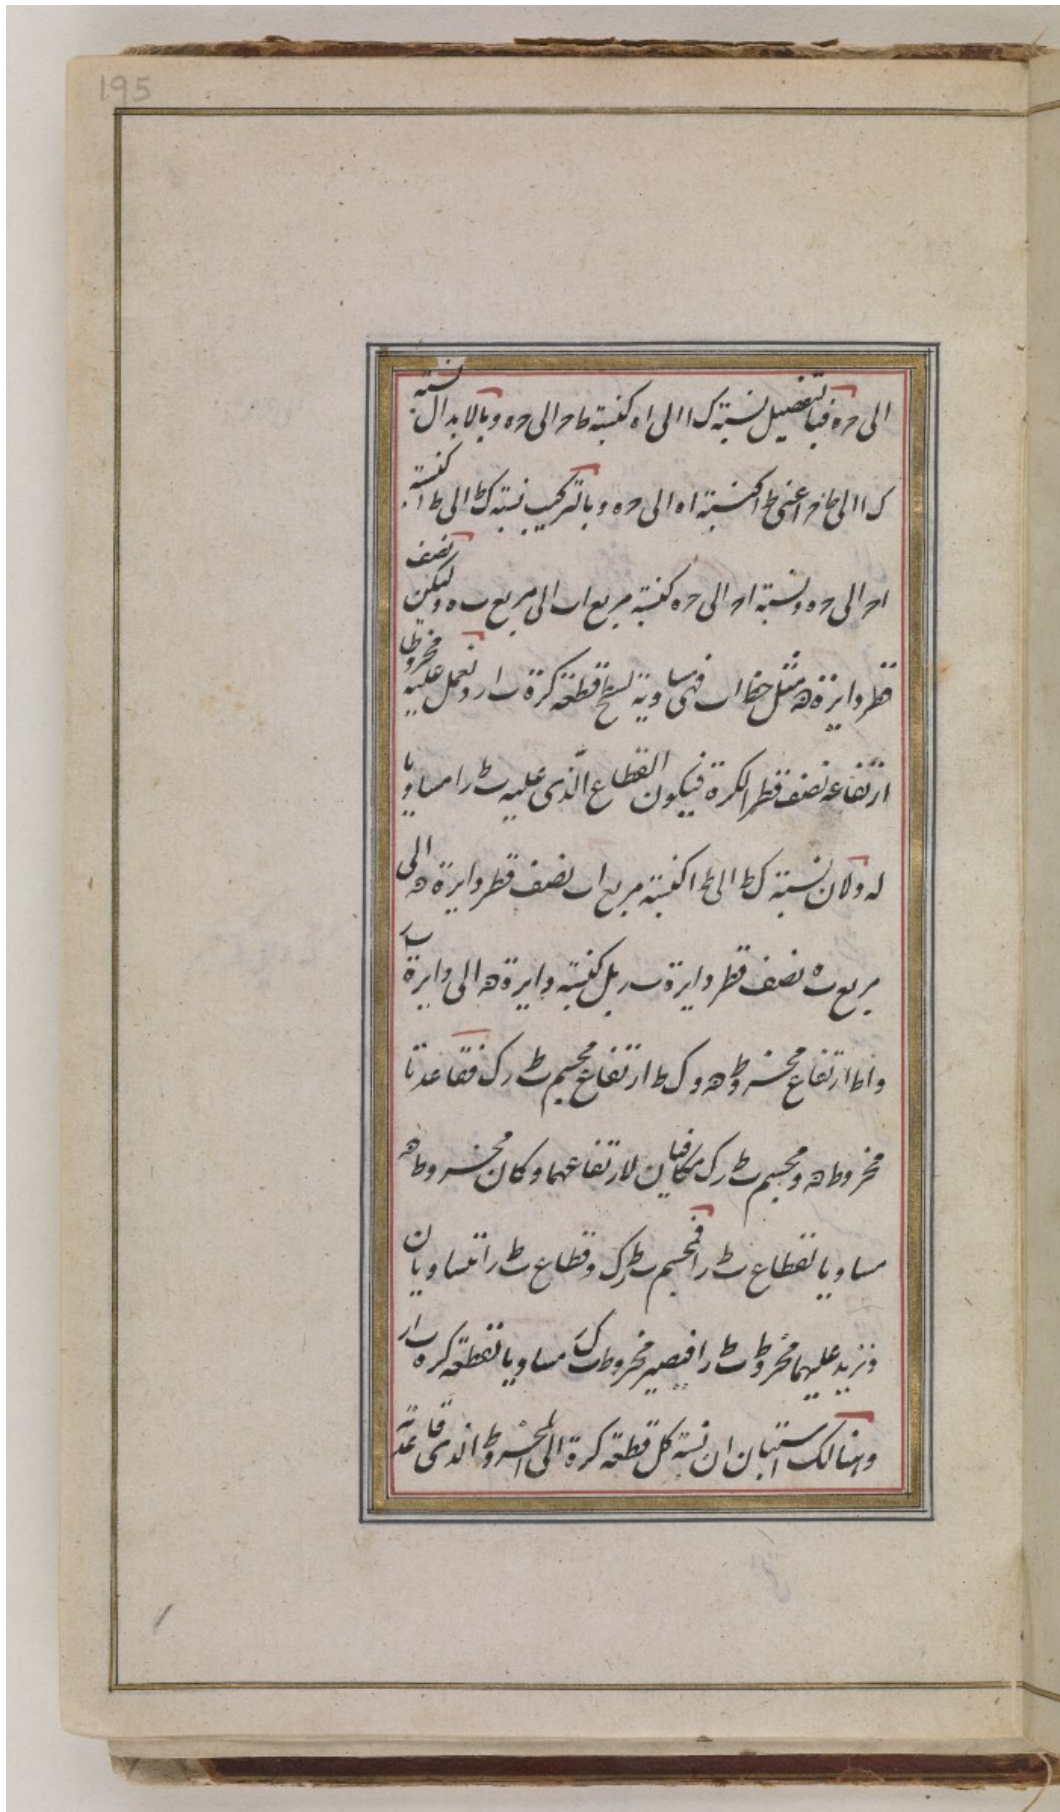 195
الى حه فبالتفصيل نسبة ك ا الى اه كنسبة ط ح الى حه وبالابدال نسبة
ك ا الى ط ح اعنى ط ا كنسبة اه الى حه وبالتركيب نسبة ك ط الى ط ا كنسبة
اح الى حه ونسبة اح الى حه كنسبة مربع اب الى مربع ب ه وليكن نصف
قطر دايرة هـ مثل خط اب فهى مساوية لسطح قطعة كرة ب ا ر ونعمل عليه مخروطا
ارتفاعه نصف قطر الكرة فيكون القطاع الذى عليه ب ط ر ا مساويا
له ولان نسبة ك ط الى ط ا كنسبة مربع اب نصف قطر دايرة هـ الى
مربع ب ه نصف قطر دايرة ب ر بل كنسبة دايرة هـ الى دايرة ب ر
و ا ط ارتفاع مخروط هـ و ك ط ارتفاع مجسم ب ط ر ك فقاعدتا
مخروط هـ ومجسم ب ط ر ك مكافيان لارتفاعهما وكان مخروط هـ
مساويا لقطاع ب ط ر ا فمجسم ب ط ر ك وقطاع ب ط ر ا متساويان
ونزيد عليهما مخروط ب ط ر فيصير مخروط ب ك ر مساويا لقطعة كره ب ا ر
وهنالك استبان ان نسبة كل قطعة كرة الى المخروط الذى قاعدته